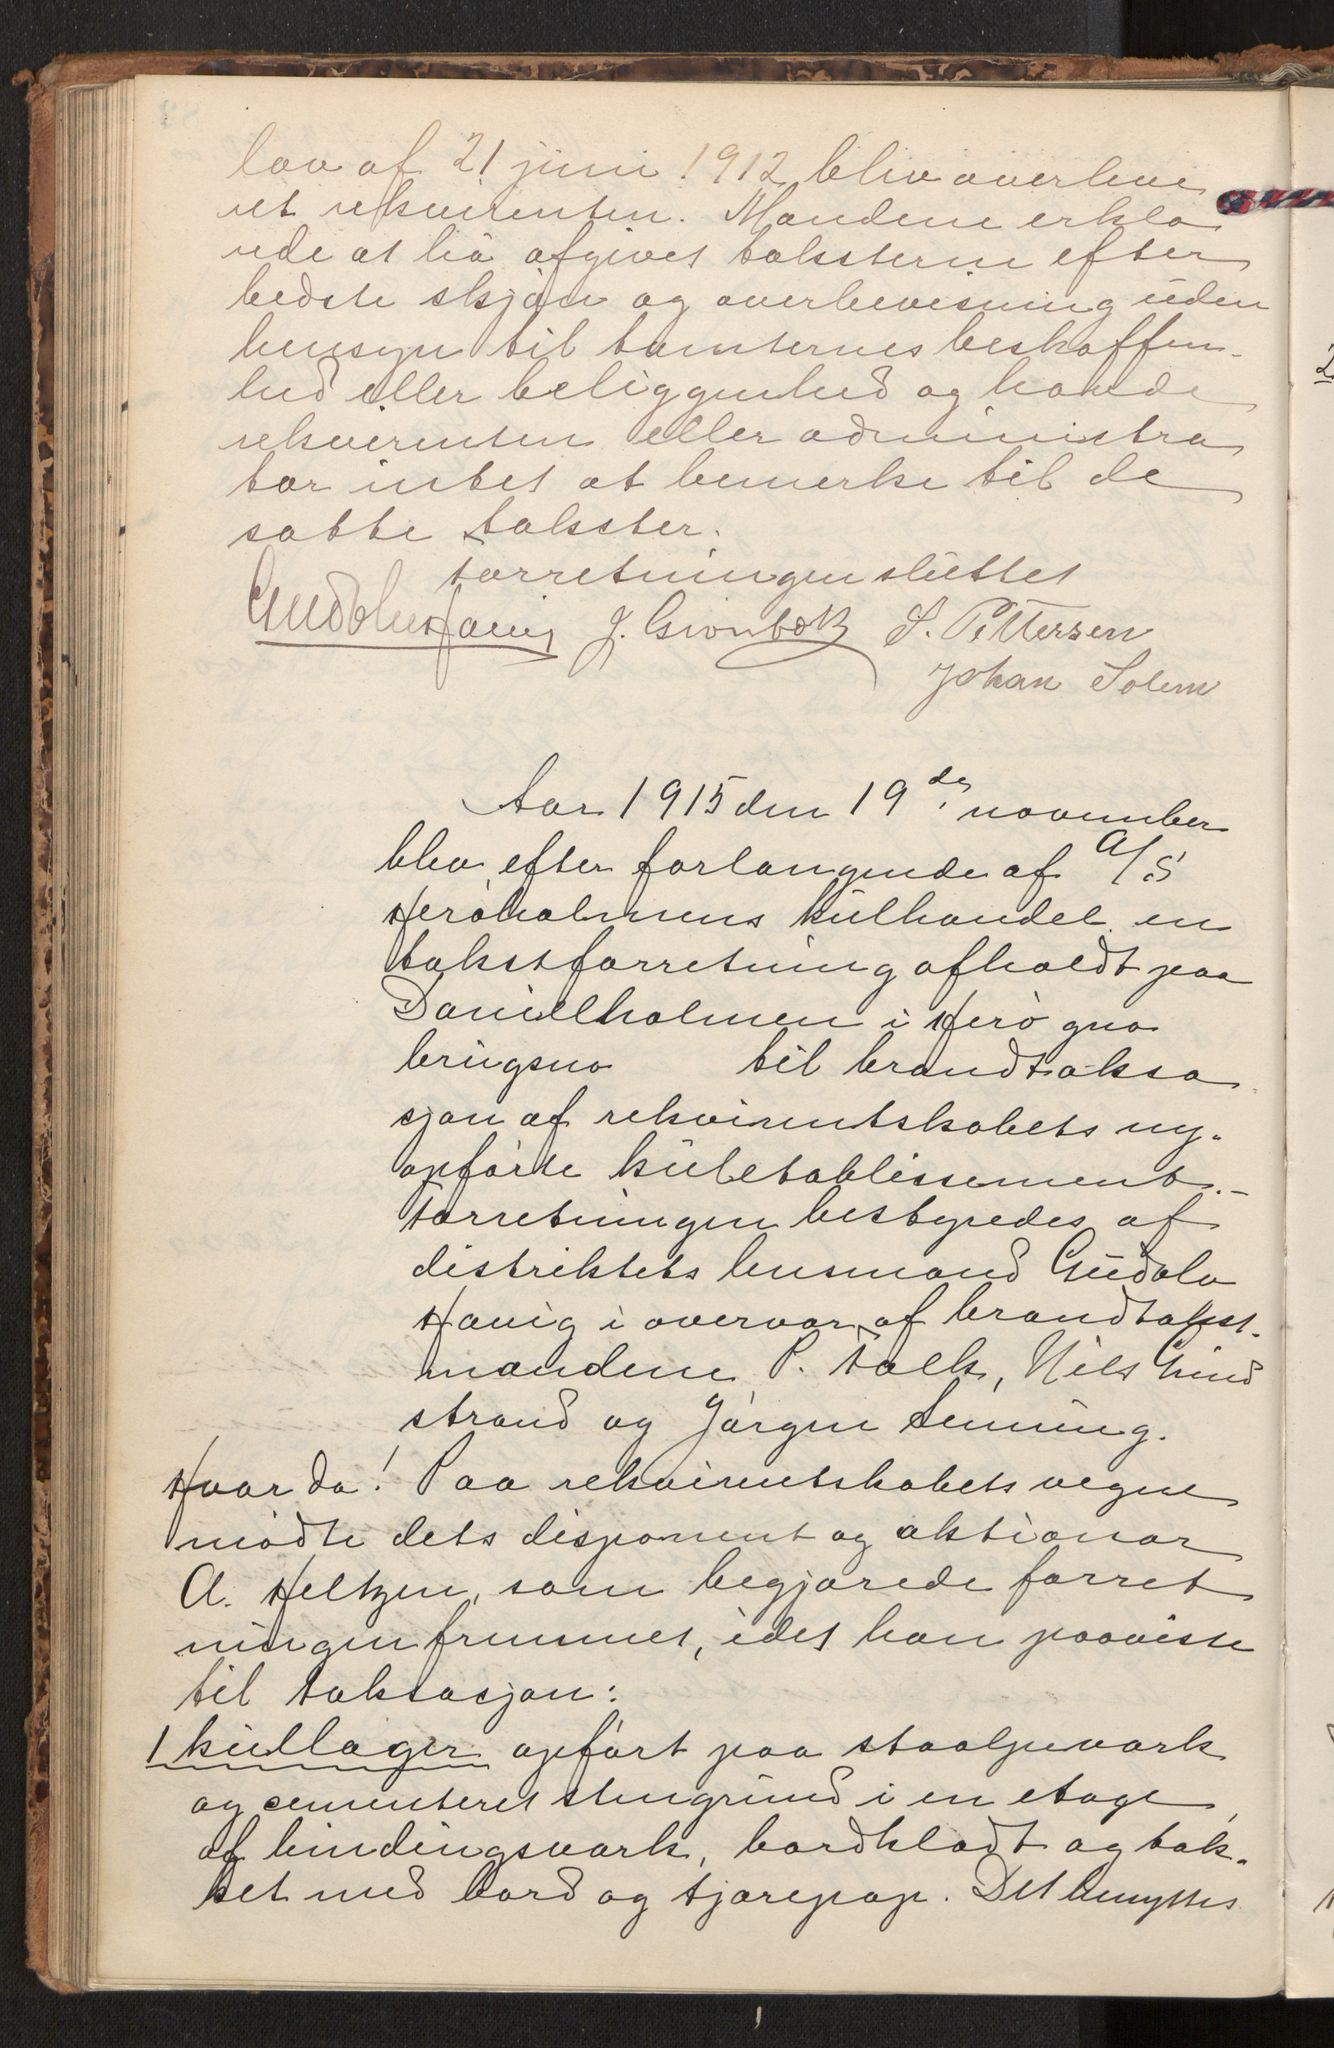 lov af 21 juni 1912 blev overleve
ret rekvirenten. Mændene erklæ
rede at ha afgivet taksterne efter
bedste skjøn og overbevisning uden
hensyn til tomternes beskaffen-
hed eller beliggenhed og havde
rekvirenten eller administra
tor intet at bemerke til de
satte takster.
Forretningen sluttet
Gudolv Høvig J. Grønbæk S. Pettersen
Johan Solem
Aar 1915 den 19de november
blev efter forlangende af A/S
Herøholmens kulhandel en
takstforretning afholdt paa
Danielholmen i Herø gno
brugsno til brandtaksa
sjon af rekvirentskabets ny-
opførte kuletablissement.-
Forretningen bestyredes af
distriktets lensmand Gudolv
Høvig i overvær af brandtakst-
mændene P. Falk, Nils Lind
strand og Jørgen Lenning.
Hvorda! Paa rekvirentskabets vegne
mødte dets disponent og aktionær
A. Heltzen, som begjærede forret
ningen fremmet, idet han paaviste
til taksasjon:
1 kullager opført paa staalpæværk
og cementeret stengrund i en etage,
af bindingsværk, bordklædt og tæk-
ket med bord og tjærepap. Det benyttes